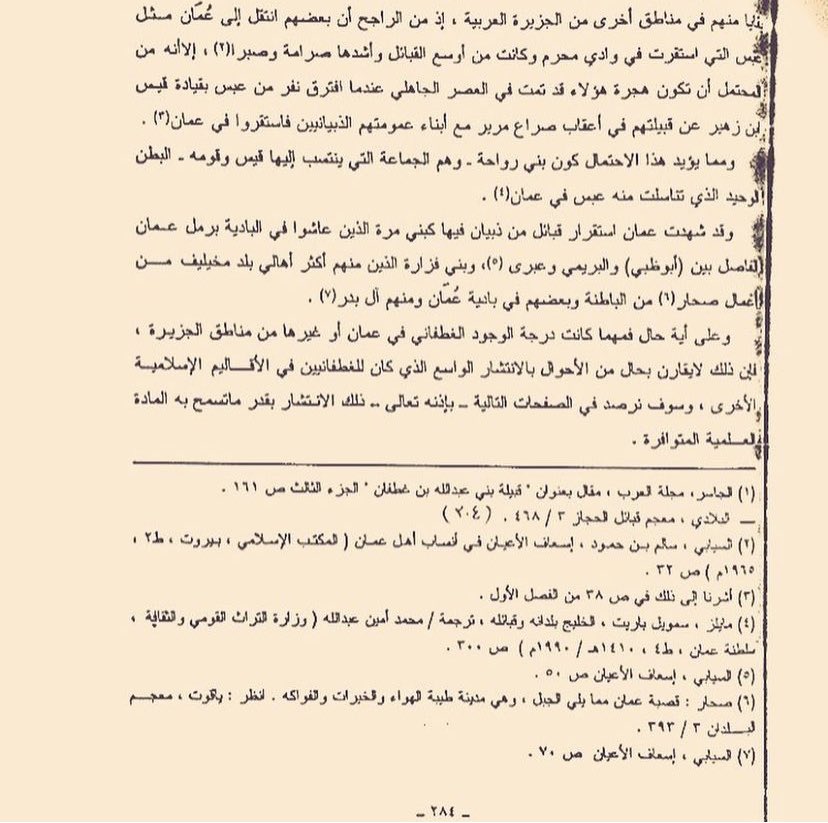 بقايا منهم في مناطق أخرى من الجزيرة العربية ، إذ من الراجح أن بعضهم انتقل إلى عُمَان مـثـل
عبس التي استقرت في وادي محرم وكانت من أوسع القبائل وأشدها صرامة وصبرا(٢) ، إلاأنه من
المحتمل أن تكون هجرة هؤلاء قد تمت في العصر الجاهلي عندما افترق نفر من عبس بقيادة قيس
ابن زهير عن قبيلتهم في أعقاب صراع مرير مع أبناء عمومتهم الذبيانيين فاستقروا في عمان(٣) .
ومما يؤيد هذا الاحتمال كون بني رواحة ـ وهم الجماعة التي ينتسب إليها قيس وقومه ـ البطن
الوحيد الذي تناسلت منه عبس في عمان(٤) .
وقد شهدت عمان استقرار قبائل من ذبيان فيها كبني مرة الذين عاشوا في البادية برمل عـمان
الفاصل بين (أبوظبي) والبريمي وعبرى (٥)، وبني فزارة الذين منهم أكثر أهالي بلد مخيليف مـــن
أعمال صحار(٦) من الباطنة وبعضهم في بادية عُمَان ومنهم آل بدر(٧) .
وعلى أية حال فمهما كانت درجة الوجود الغطفاني في عمان أو غيرها من مناطق الجزيـرة ،
فإن ذلك لايقارن بحال من الأحوال بالانتشار الواسع الذي كان للغطفانيين في الأقالـــيم الإسلاميـة
الأخرى ، وسوف نرصد في الصفحات التالية ــ بإذنه تعالى ــ ذلك الانتشار بقدر ماتسمح به المادة
العـلـمية المتوافرة .
(١) الجاسر، مجلة العرب ، مقال بعنوان " قبيلة بني عبدالله بن غطفان " الجزء الثالث ص ١٦١ .
ـــ البلادي ، معجم قبائل الحجاز ٣ / ٤٦٨ . ( ٢٠٤ )
(٢) السيابي ، سالم بـن حمـود ، إسعاف الأعيان في أنساب أهل عمان ( المكتب الإسلامي ، بـيروت ، ط٢ ،
١٩٦٥م ) ص ٣٢ .
(٣) أشرنا إلى ذلك في ص ٣٨ من الفصل الأول .
(٤) مايلز ، سمويل باريت ، الخليج بلدانه وقبائله ، ترجمة / محمد أمين عبدالله ( وزارة التراث القومي والثقافة ،
سلطنة عمان ، ط٤ ، ١٤١٠هـ / ١٩٩٠م ) ص ٣٠٠ .
(٥) السيابي ، إسعاف الأعيان ص ٥٠ .
(٦) صحار : قصبة عمان مما يلي الجبل ، وهي مدينة طيبة الهواء والخيرات والفواكه . انظر : ياقوت ، معجـم
البـــلدان ٣ / ٣٩٣ .
(٧) السيابي ، إسعاف الأعيان ص ٧٠ .
ـ ٢٨٤ ـ